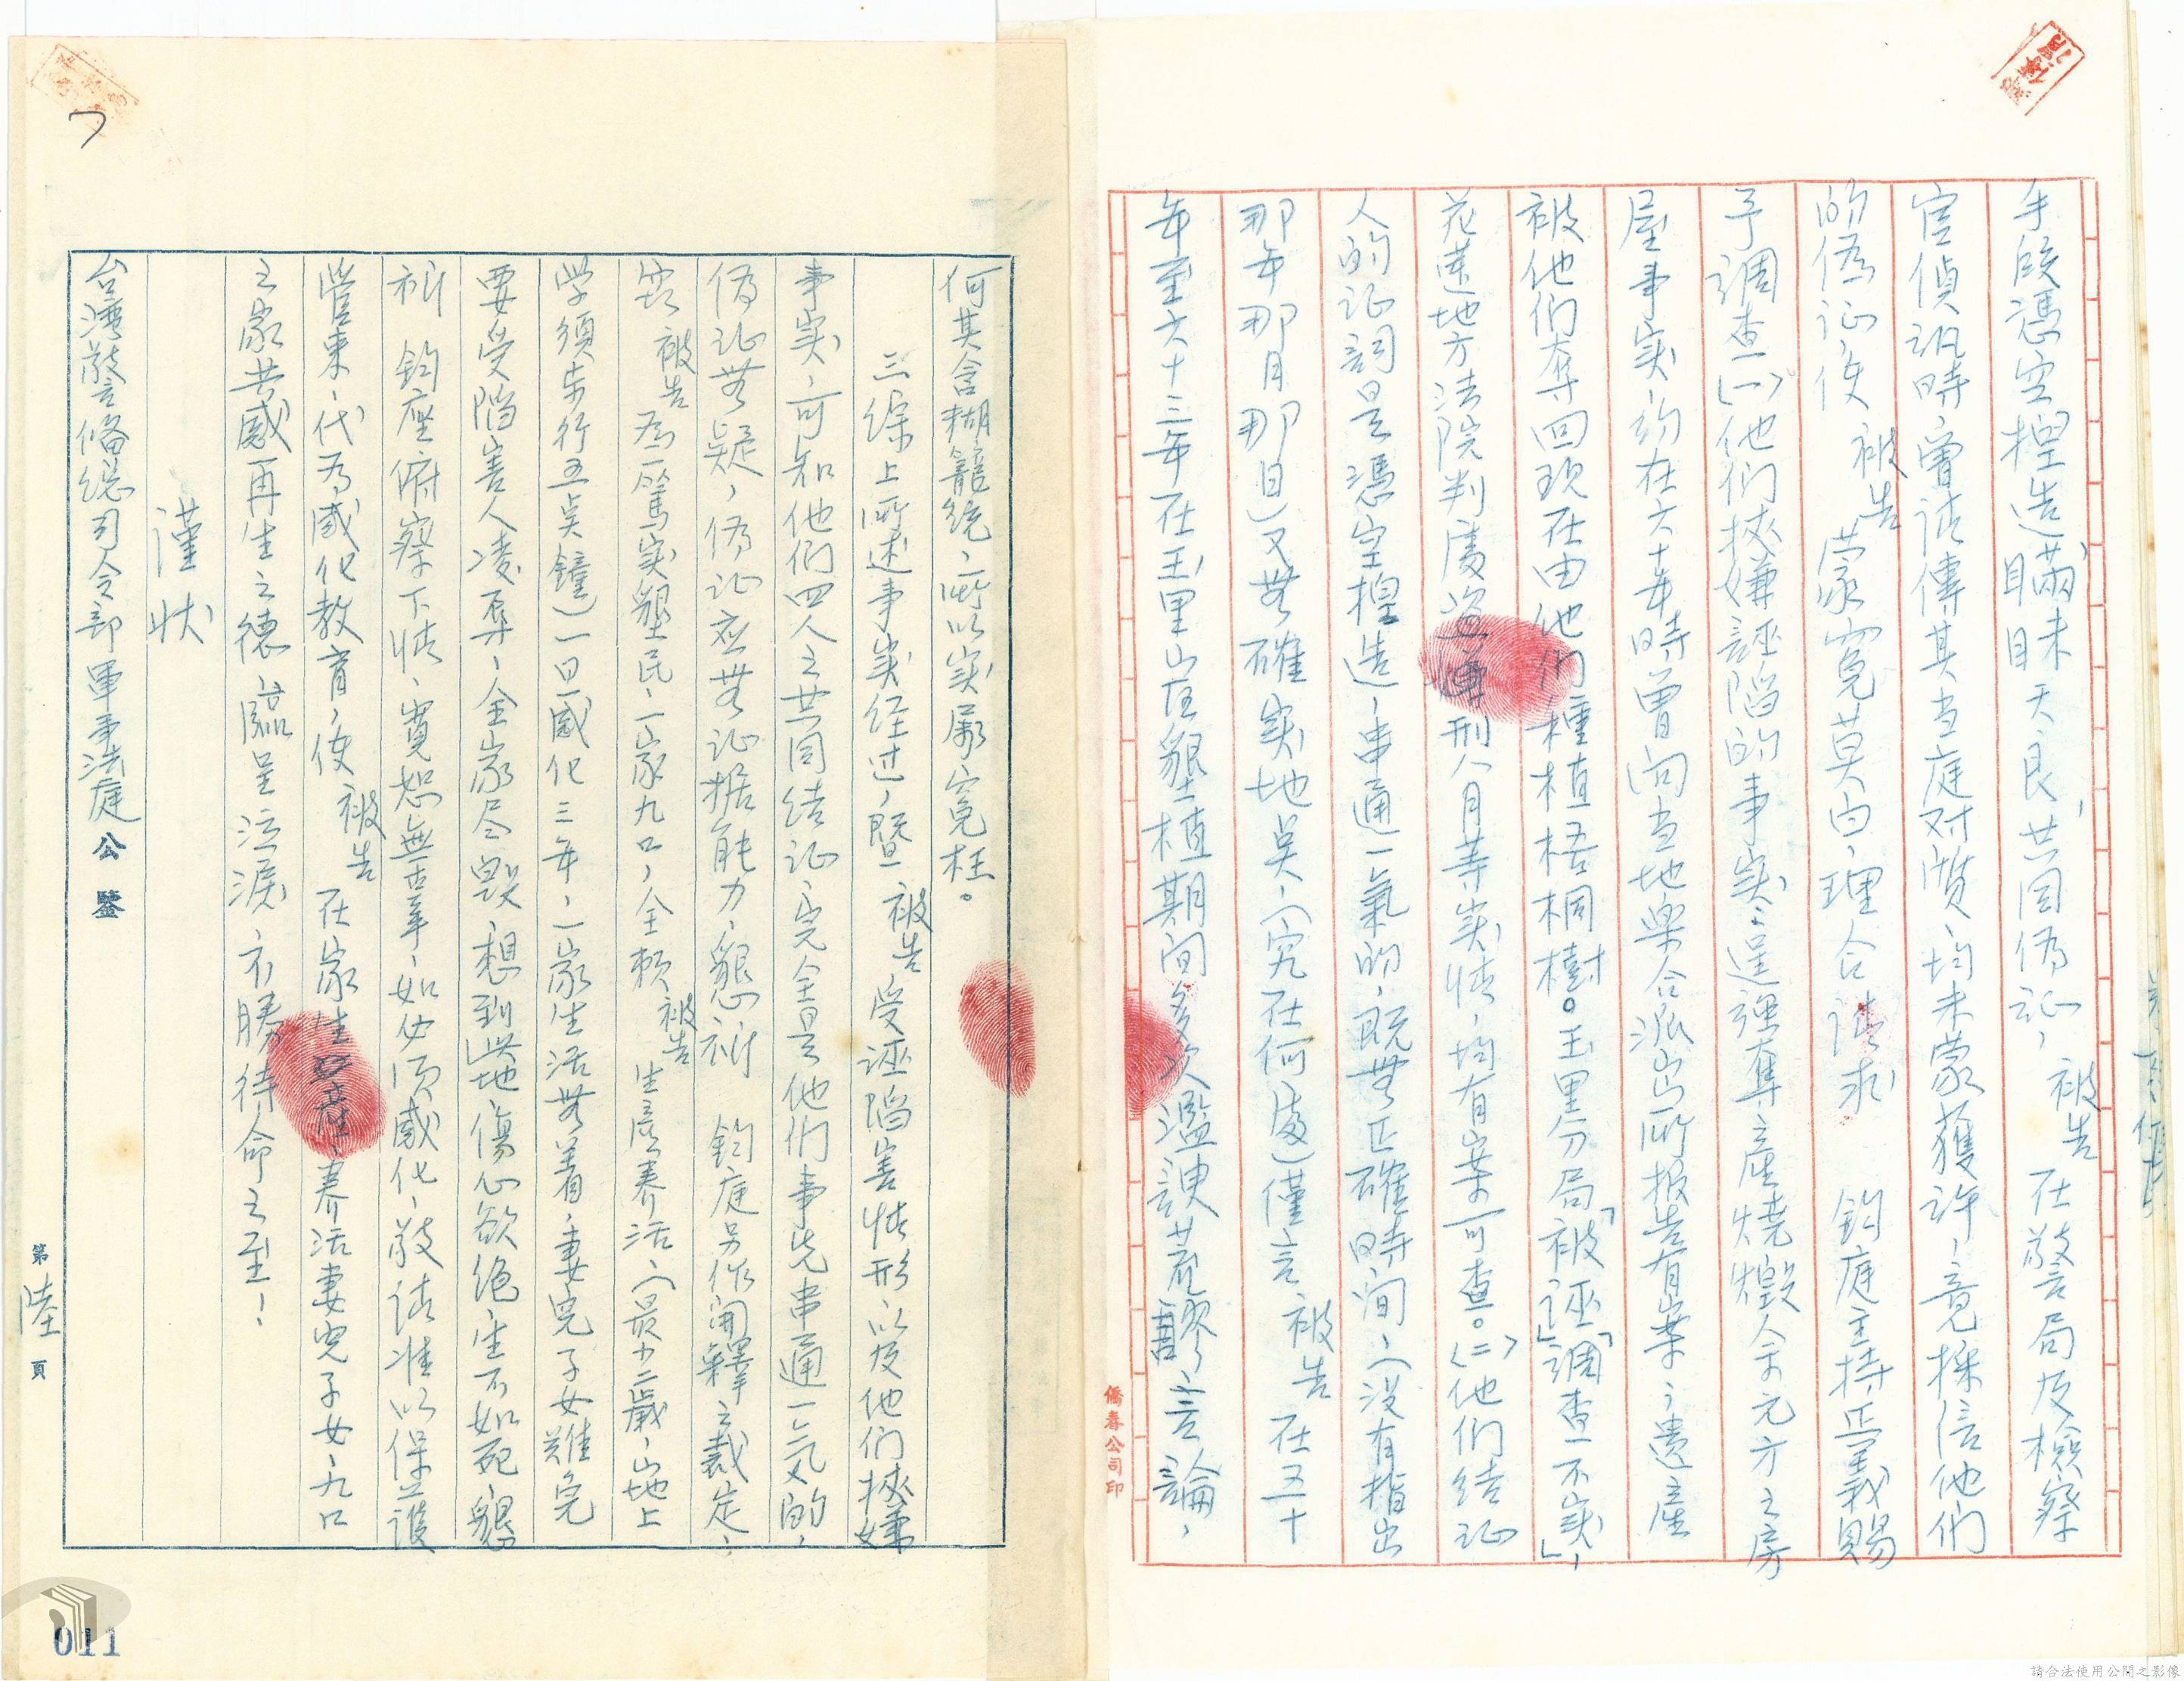 手段憑空捏造瞞昧天良，共同偽证，被告在警局及檢察
官偵訊時，曾請傳其当庭对質，均未蒙獲許，竟採信他們
的偽证，使 被告 蒙寃莫白，理合請求 鈞庭主持正義賜
予調查(一)他們挾嫌誣陷的事实：逞強奪產燒燬余元方之房
屋事实，約在六十年時曾向当地樂合派出所报告有案，遺產
被他們奪回现在由他們種植梧桐樹。玉里分局「被誣」「調查不实」，
花蓮地方法院判處 刑八月等实情，均有案可查。(二)他們结证
人的证詞是憑空捏造，串通一氣的，既無正確時间，(没有指出
那年那月那日)又無確实地奌，(究在何處)僅言 被告 在五十
年至六十三年在玉里山区墾植期间多次濫諛荒謬言論，
何其含糊籠統，所以实屬寃枉。
三綜上所述事实经过，暨 被告 受誣陷害情形以及他們挾嫌
事实，可知他們四人之共同结证，完全是他們事先串通一氣的，
偽证無疑，偽证应無证据能力，懇祈 鈞庭另作開釋之裁定，
窃 被告 為一篤实墾民，一家九口，全赖 被告 生產养活(最少二歲，地上
学須步行五奌鐘)一曰感化三年，一家生活無着，妻兒子女難免
要受陷害人凌弄，全家尽毁，想到此地傷心欲绝生不如死，懇
祈 鈞座俯察下情，寬恕無辜，如必须感化，敬請准以保護
管束，代为感化教育，使 被告 在家生產，养活妻兒子女，九口
之家共感再生之德，臨呈泣淚，不勝待命之至！
謹狀
台灣警备總司令部軍事法庭公鑒
第陸頁
僑春公司印
011
請合法使用公開之影像